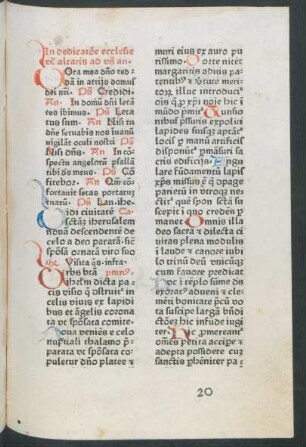 In dedicatõe ecclesie
vĺ altaris ad vs̃ añ.
Uota mea dño red-
dã in atrijs domus
dei nr̃i. Ps̃ Credidi
Añ In domũ dñi letã
tes ibimus. Ps̃ Leta
tus sum. Añ Nisi tu
dñe seruabis nos in vanũ
vigilãt oculi nostri Ps̃
Nisi dñs. Añ In cõ-
spectu angelorũ psallã
tibi ds̃ meus Ps̃ Cõ
fitebor. Añ Qm̃ cõ-
fortauit seras portarũ
tuarũ. Ps̃ Lau. ihe-
Uidi ciuitatẽ Ca.
sctã iherusalem
nouã descendentẽ de
celo a deo paratã. sic̃
spõsã ornatã viro suo
Visita q̃s. infra
Urbs btã ymn9.
iħrlm̃ dicta pa-
cis visio q̃ ꝯstruit᷑ in
celis viuis ex lapidi
bus et ãgelis corona
ta vt spõsata comite
noua veniẽs e celo
nuptiali thalamo p̃-
parata vt spõsata co-
puletur dño platee &
muri eius ex auro pu
rissimo. Porte nitẽt
margaritis aditis pa-
tentib9 & v̾tute meri-
torz illuc introduci-
tur
mũdo pmit᷑ Tunsio
nibus pressuris expoliti
lapides suisqz aptãt᷑
locis p manũ artificis
disponũt᷑ pmãsuri sa-
cris edificijs. Angu-
lare fũdamentũ lapis
xps̃ missus ẽ q̃ cõpage
parietũ in vtroqz ne-
ctit᷑ quẽ syon sctã su-
scepit i quo credẽs p
manet Omnis illa
deo sacra & dilecta ci
uitas plena modulis
ĩ laude & canore iubi
lo trinũ deũ vnicuqz
cum fauore predicat
Hoc ĩ tẽplo sũme ds̃
exorat᷑ adueni & cle-
mẽti bonitate pcũ vo
ta suscipe largã bñdi
ctõez hic infude iugi-
ter. Hic pmereant᷑
omẽs petita accipe &
adepta possidere cuz
sanctis phẽniter pa-
20